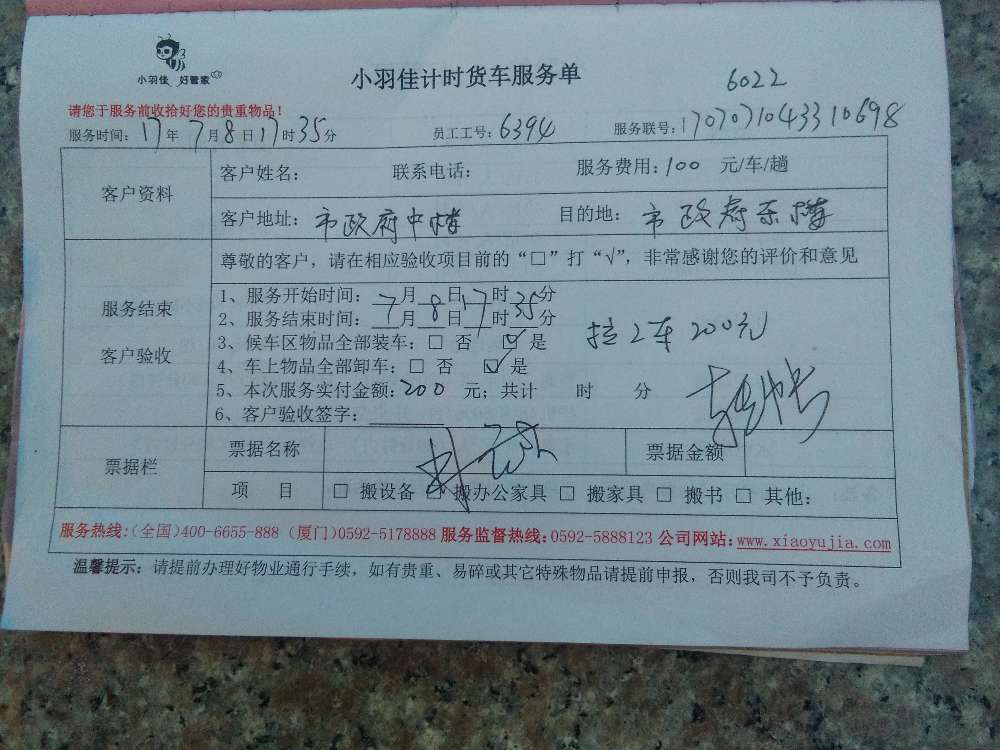 小羽佳 好管家
小羽佳计时货车服务单
6022
请您于服务前收拾好您的贵重物品！
服务时间：17年7月8日17时35分 员工工号：6394 服务联号：170707104331 0698
客户资料
客户姓名： 联系电话： 服务费用：100 元/车/趟
客户地址：市政府中楼 目的地：市政府东楼
尊敬的客户，请在相应验收项目前的“□”打“√”，非常感谢您的评价和意见
服务结束
客户验收
1、服务开始时间：7月8日17时35分
2、服务结束时间：__月__日__时__分
3、候车区物品全部装车：□ 否 ☑ 是
拉2车200元
4、车上物品全部卸车：□ 否 ☑ 是
5、本次服务实付金额：200 元；共计 时 分
6、客户验收签字：
票据栏
票据名称 票据金额
项 目 □ 搬设备 ☑ 搬办公家具 □ 搬家具 □ 搬书 □ 其他：
服务热线：（全国）400-6655-888（厦门）0592-5178888 服务监督热线：0592-5888123 公司网站：www.xiaoyujia.com
温馨提示：请提前办理好物业通行手续，如有贵重、易碎或其它特殊物品请提前申报，否则我司不予负责。